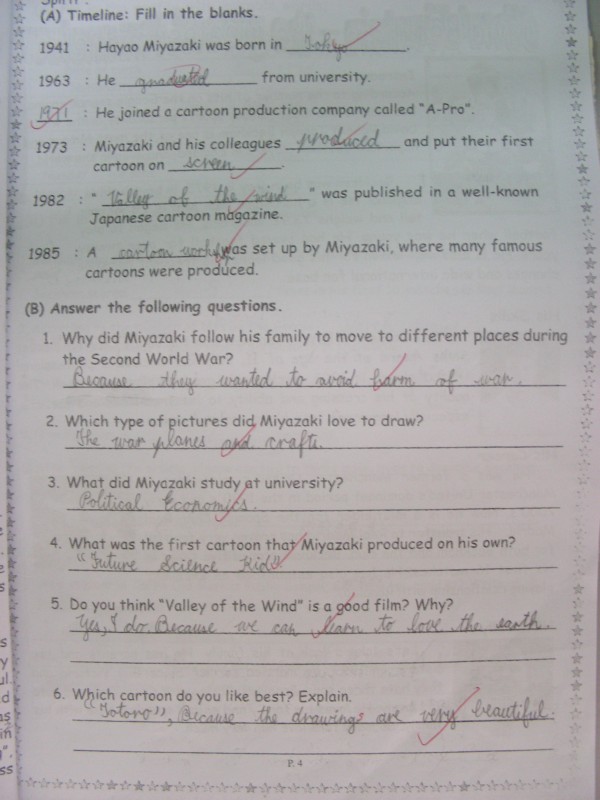 (A) Timeline: Fill in the blanks.
1941 : Hayao Miyazaki was born in Tokyo.
1963 : He graduated from university.
1971 : He joined a cartoon production company called "A-Pro".
1973 : Miyazaki and his colleagues produced and put their first
cartoon on screen.
1982 : "Valley of the wind" was published in a well-known
Japanese cartoon magazine.
1985 : A cartoon was set up by Miyazaki, where many famous
cartoons were produced.
(B) Answer the following questions.
1. Why did Miyazaki follow his family to move to different places during
the Second World War?
Because they wanted to avoid harm of war.
2. Which type of pictures did Miyazaki love to draw?
The war planes and crafts.
3. What did Miyazaki study at university?
Political Economics.
4. What was the first cartoon that Miyazaki produced on his own?
"Future Science Kids"
5. Do you think "Valley of the Wind" is a good film? Why?
Yes, I do. Because we can learn to love the earth.
6. Which cartoon do you like best? Explain.
"Totoro", Because the drawings are very beautiful.
P.4